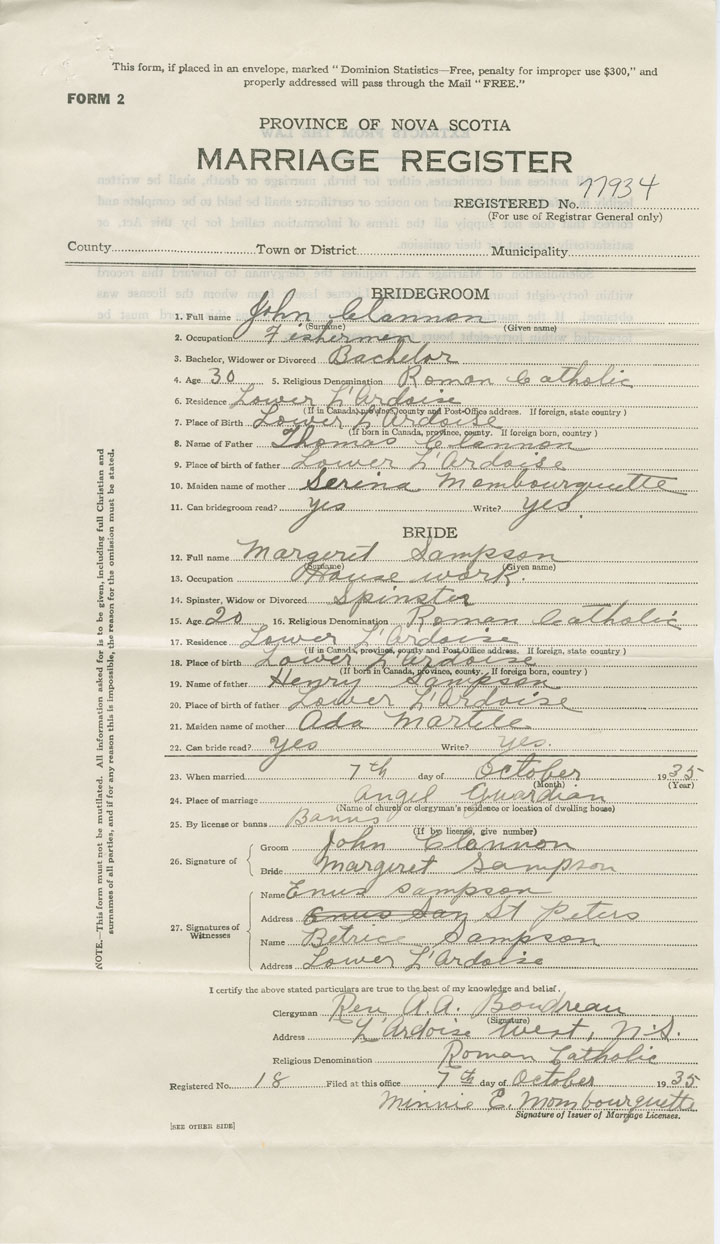 This form, if placed in an envelope, marked "Dominion Statistics—Free, penalty for improper use $300," and
properly addressed will pass through the Mail "FREE."
FORM 2
PROVINCE OF NOVA SCOTIA
MARRIAGE REGISTER
REGISTERED No. 77934
(For use of Registrar General only)
County Town or District Municipality
BRIDEGROOM
1. Full name John Clannon
(Surname) (Given name)
2. Occupation Fishermen
3. Bachelor, Widower or Divorced Bachelor
4. Age 30 5. Religious Denomination Roman Catholic
6. Residence Lower L'Ardoise
(If in Canada, province, county and Post-Office address. If foreign, state country)
7. Place of Birth Lower L'Ardoise
(If born in Canada, province, county. If foreign born, country)
8. Name of Father Thomas Clannon
9. Place of birth of father Lower L'Ardoise
10. Maiden name of mother Serina Mombourquette
11. Can bridegroom read? yes Write? yes.
BRIDE
12. Full name Margeret Sampson
(Surname) (Given name)
13. Occupation House work.
14. Spinster, Widow or Divorced Spinster
15. Age 20 16. Religious Denomination Roman Catholic
17. Residence Lower L'Ardoise
(If in Canada, province, county and Post-Office address. If foreign, state country)
18. Place of birth Lower L'Ardoise
(If born in Canada, province, county. If foreign born, country)
19. Name of father Henry Sampson
20. Place of birth of father Lower L'Ardoise
21. Maiden name of mother Ada Martell
22. Can bride read? yes Write? yes.
23. When married 7th day of October 1935
(Month) (Year)
24. Place of marriage Angel Guardian
(Name of church or clergyman's residence or location of dwelling house)
25. By license or banns Banns
(If by license, give number)
26. Signature of Groom John Clannon
Bride Margeret Sampson
27. Signatures of Witnesses Name Enus Sampson
Address Enus Say St Peters
Name Betrice Sampson
Address Lower L'Ardoise
I certify the above stated particulars are true to the best of my knowledge and belief.
Clergyman Rev A.A. Boudreau
(Signature)
Address L'Ardoise West, N.S.
Religious Denomination Roman Catholic
Registered No. 18 Filed at this office 7th day of October 1935
Minnie E. Mombourquette
Signature of Issuer of Marriage Licenses.
[SEE OTHER SIDE]
NOTE.—This form must not be mutilated. All information asked for is to be given, including full Christian and
surnames of all parties, and if for any reason this is impossible, the reason for the omission must be stated.